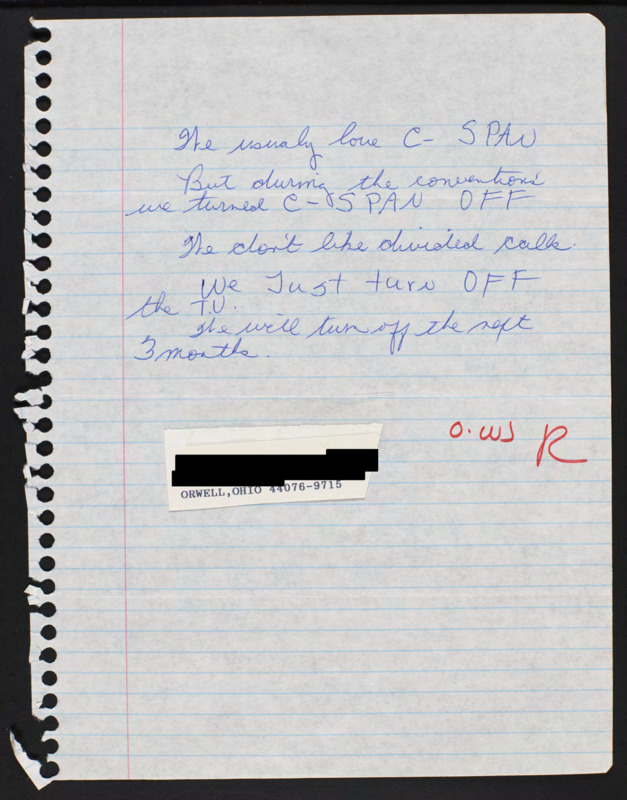 We usualy love C- SPAN
But during the conventions
we turned C-SPAN OFF
We don't like divided calls.
We Just turn OFF
the T.V.
We will turn off the next
3 months.
O.WJ R
ORWELL,OHIO 44076-9715